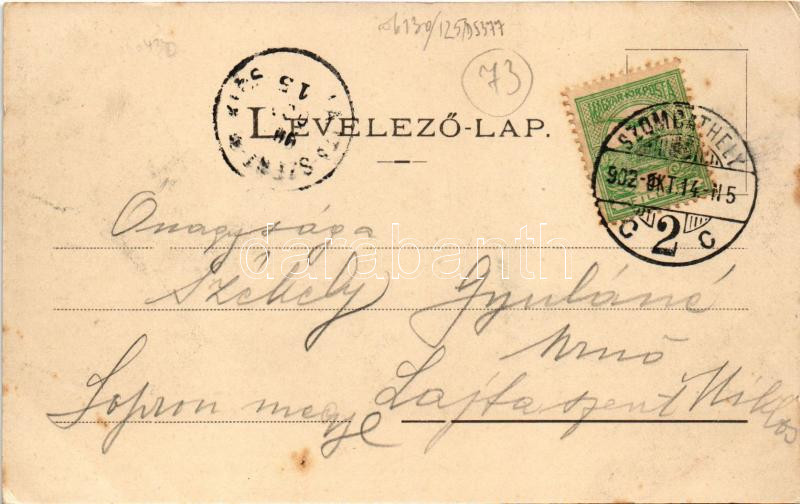 73
LEVELEZŐ-LAP.
MAGYAR KIR. POSTA
SZOMBATHELY
902 OKT. 14 N 5
C 2 C
15
Önagysága
Székely Gyuláné
Urnő
Sopron megye Lajtaszent Miklós
darabanth